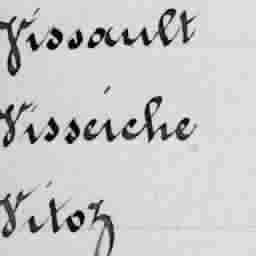 Vissault
Visseiche
Vitoz